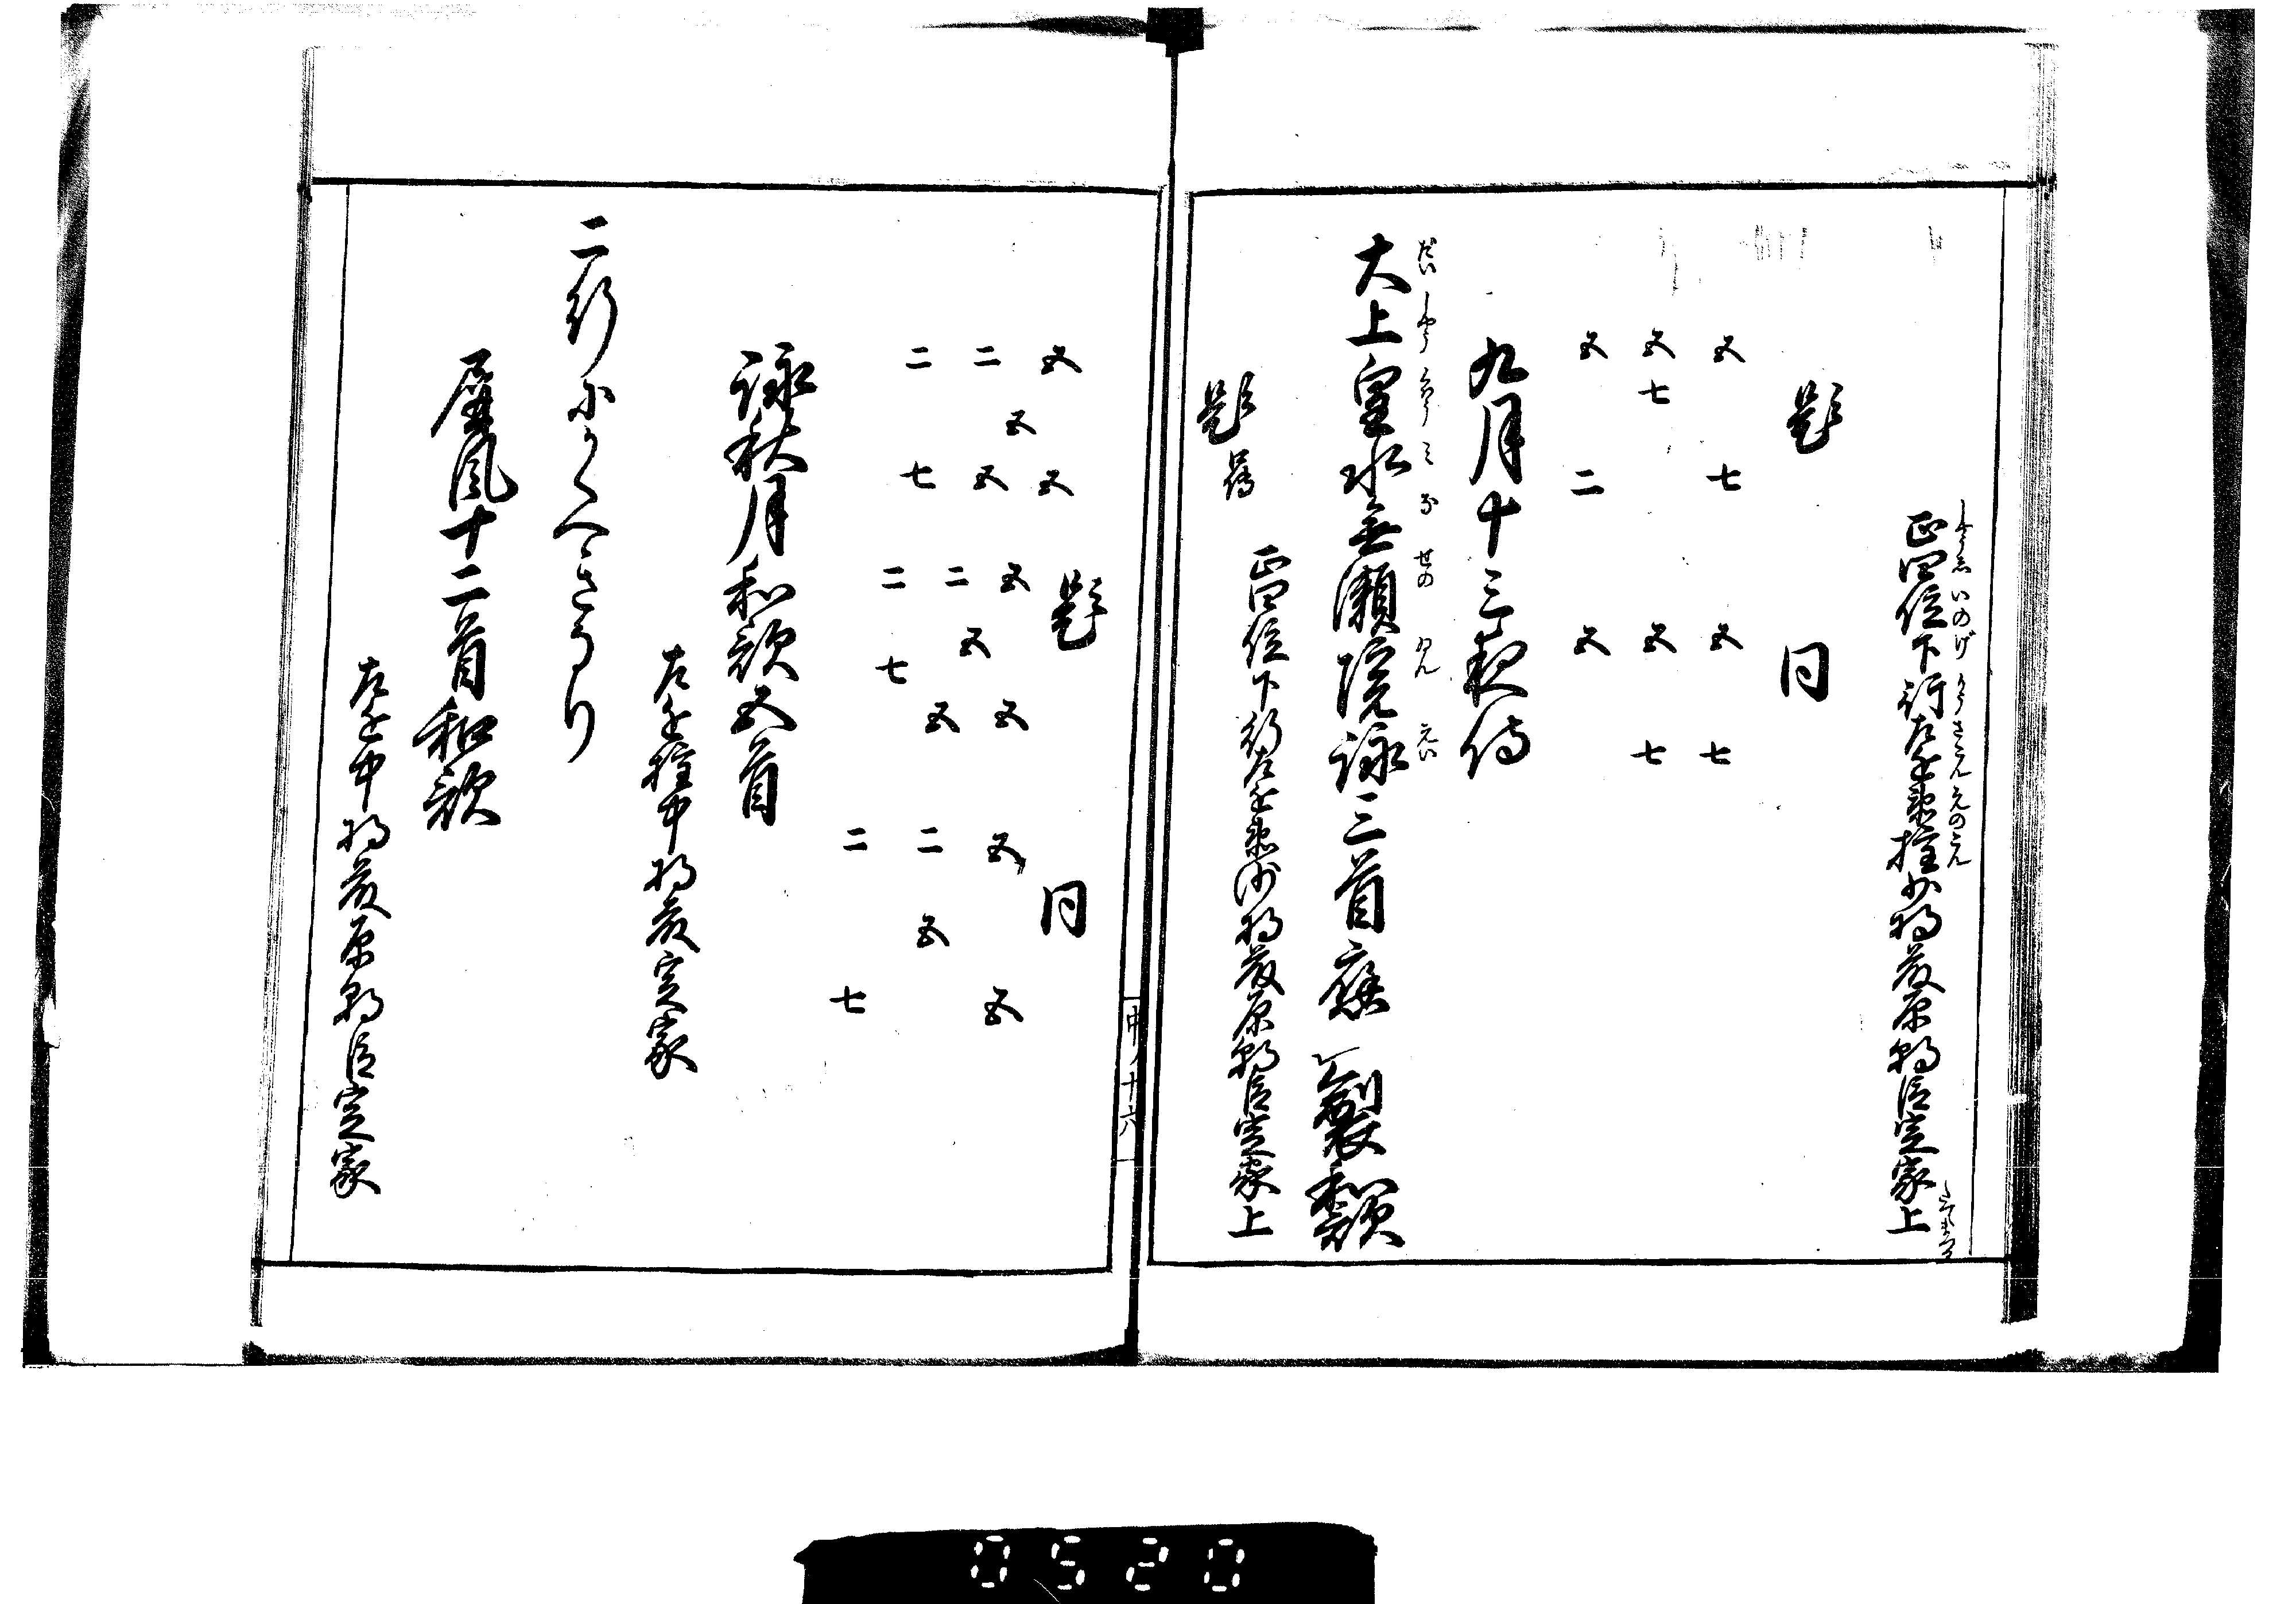 正四位下行左近衛権少将藤原朝臣定家上
題 同
五 七 五 七
五 七 五 七
五 二 五
九月十三夜侍
大上皇水無瀬院詠三首應 製和歌
題舊 正四位下行左近衛少将藤原朝臣定家上
中ノ十六
題 同
五 五 五 五 五 五
五 五 五
二 五 二 五 二
二 七 二 七 二 七
詠秋月和歌五首
左近権中将藤定家
二行にかくへきなり
屏風十二首和歌
左近中将藤原朝臣定家
0520